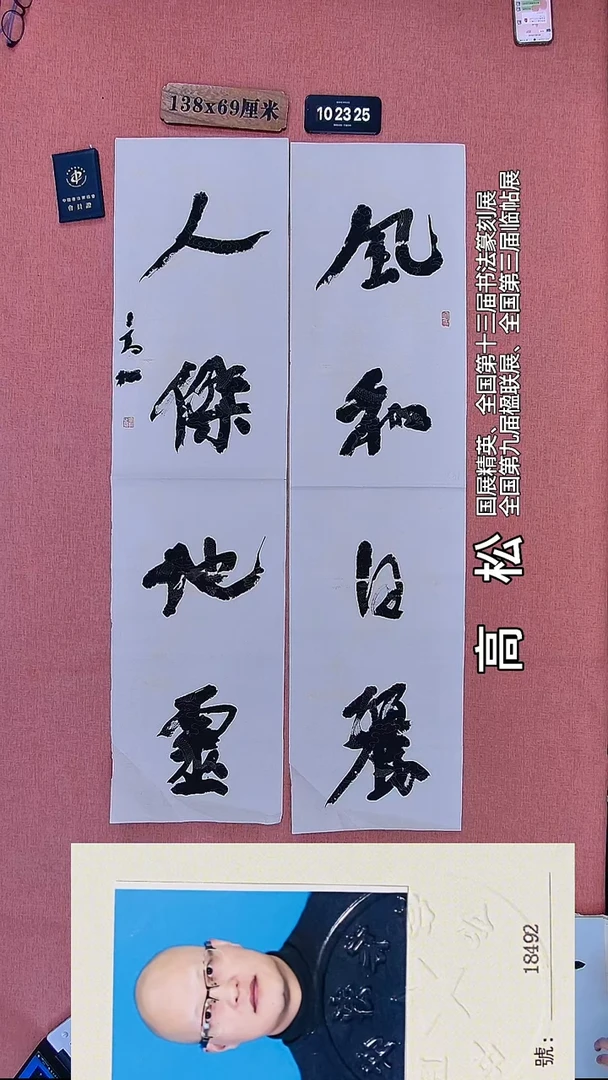 138x69厘米
10 23 25
中国书法家协会
會員證
風和日麗
人傑地靈
高松 国展精英、全国第十三届书法篆刻展
全国第九届楹联展、全国第三届临帖展
號: 18492